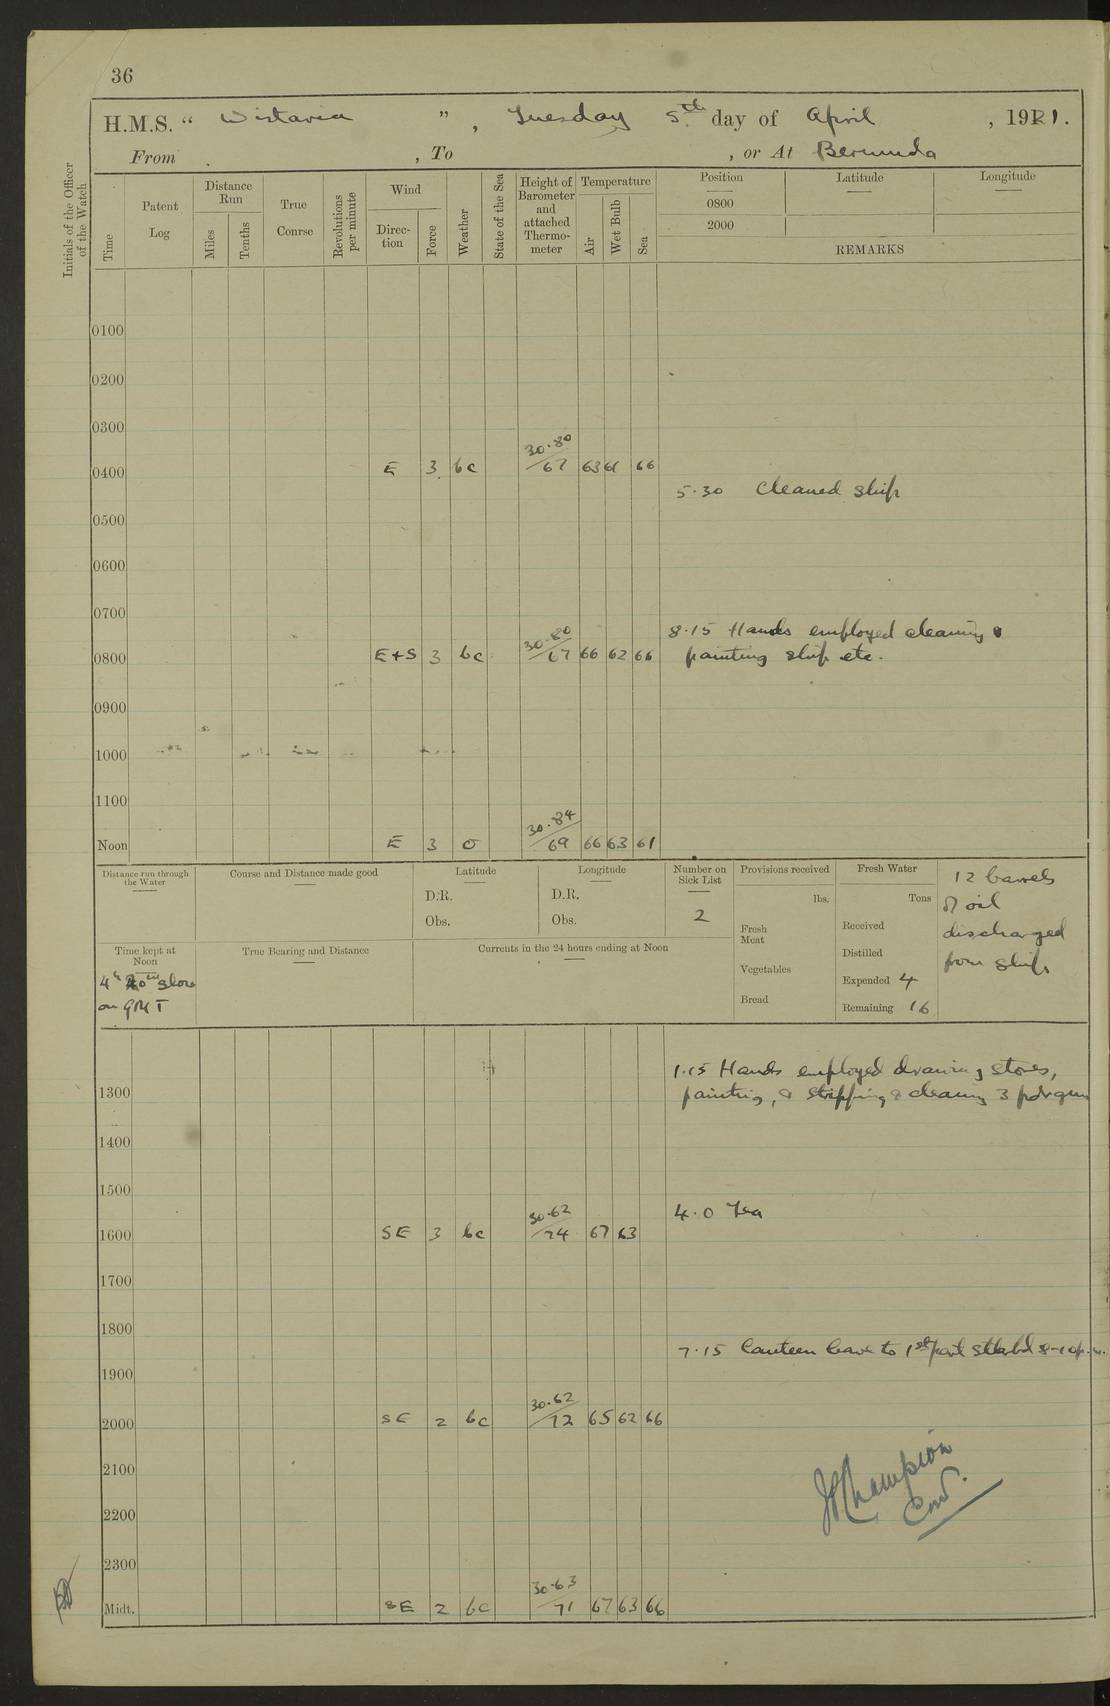 36
H.M.S. “ Wistaria ” , Tuesday 5th day of April , 1921.
From , To , or At Bermuda
Initials of the Officer of the Watch
Time
Patent Log
Distance Run
Miles
Tenths
True Course
Revolutions per minute
Wind
Direction
Force
Weather
State of the Sea
Height of Barometer and attached Thermometer
Temperature
Air
Wet Bulb
Sea
Position
0800
2000
Latitude
Longitude
REMARKS
0100
0200
0300
0400 E 3 bc 30.80/67 63 61 66
5.30 Cleaned ship
0500
0600
0700
8.15 Hands employed cleaning &
0800 E+S 3 bc 30.80/67 66 62 66 painting ship etc.
0900
1000
1100
Noon E 3 o 30.84/69 66 63 61
Distance run through the Water
Course and Distance made good
Latitude
D.R.
Obs.
Longitude
D.R.
Obs.
Number on Sick List
2
Provisions received
lbs.
Fresh Meat
Vegetables
Bread
Fresh Water
Tons
Received
Distilled
Expended 4
Remaining 16
12 barrels
of oil
discharged
from ship
Time kept at Noon
4h 20m slow
on GMT
True Bearing and Distance
Currents in the 24 hours ending at Noon
1.15 Hands employed drawing stores,
1300 painting, & stripping & cleaning 3 pdr guns
1400
1500
4.0 Tea
1600 SE 3 bc 30.62/74 67 63
1700
1800
7.15 Canteen leave to 1st part 8-10p.m.
1900
2000 SE 2 bc 30.62/72 65 62 66
2100
JChampion
Com.
2200
2300
Midt. SE 2 bc 30.63/71 67 63 66